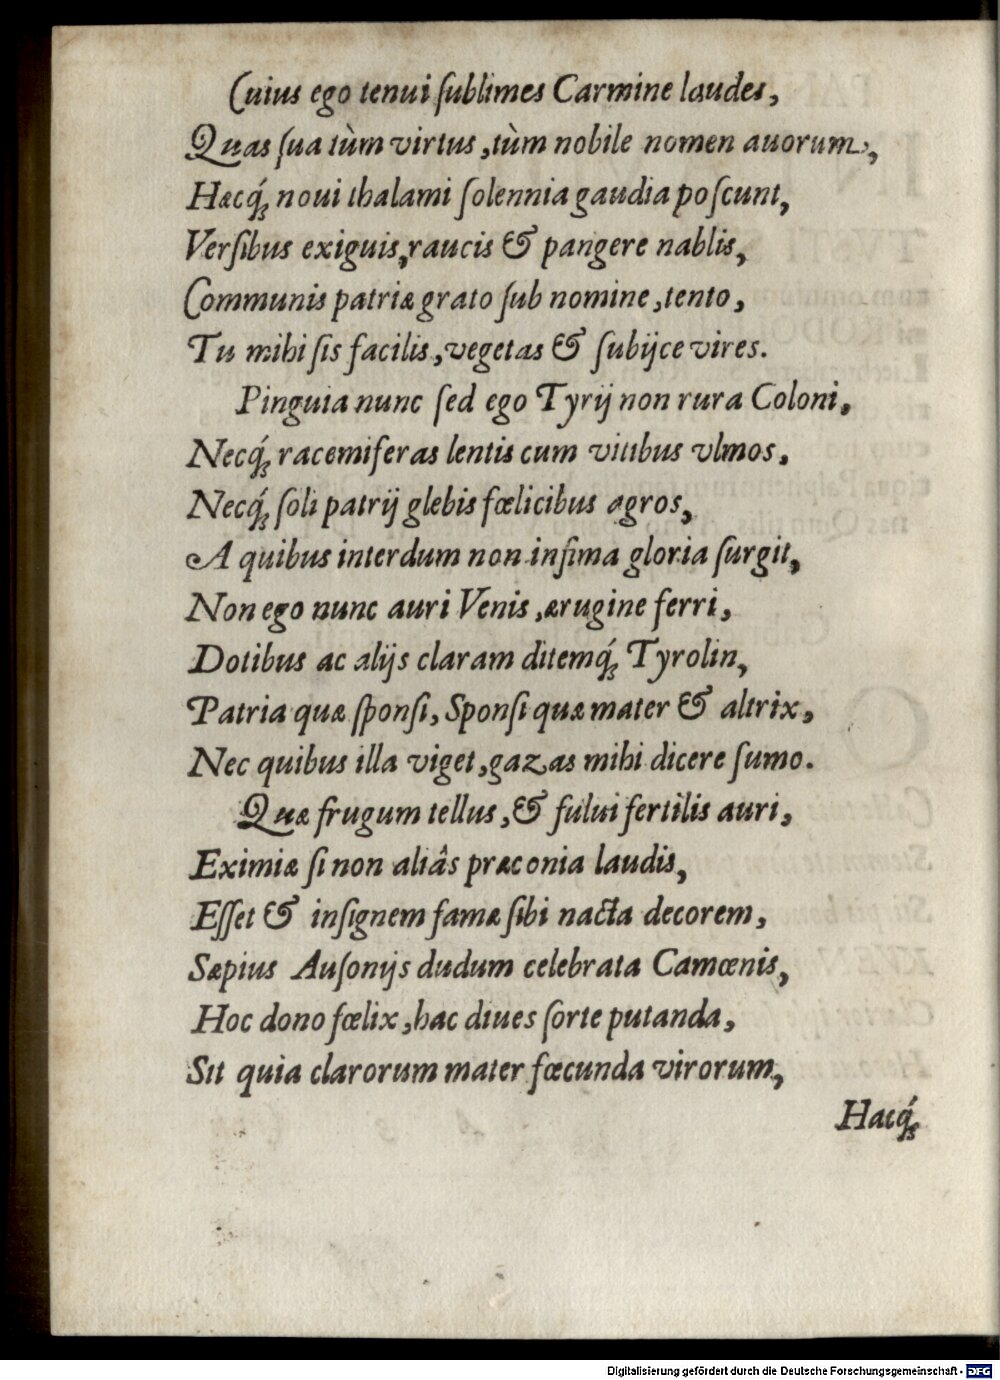 Cuius ego tenui ſublimes Carmine laudes,
Quas ſua tùm virtus, tùm nobile nomen auorum,
Hæcq́; noui thalami ſolennia gaudia poſcunt,
Verſibus exiguis, raucis & pangere nablis,
Communis patriæ grato ſub nomine, tento,
Tu mihi ſis facilis, vegetas & ſubijce vires.
Pinguia nunc ſed ego Tyrij non rura Coloni,
Necq́; racemiferas lentis cum vitibus vlmos,
Necq́; ſoli patrij glebis fœlicibus agros,
A quibus interdum non infima gloria ſurgit,
Non ego nunc auri Venis, ærugine ferri,
Dotibus ac alijs claram ditemq́; Tyrolin,
Patria quæ ſponſi, Sponſi quæ mater & altrix,
Nec quibus illa viget, gazas mihi dicere ſumo.
Quæ frugum tellus, & fului fertilis auri,
Eximiæ ſi non aliâs præconia laudis,
Eſſet & inſignem famæ ſibi nacta decorem,
Sæpius Auſonijs dudum celebrata Camœnis,
Hoc dono fœlix, hac diues ſorte putanda,
Sit quia clarorum mater fœcunda virorum,
Hacq́;
Digitalisierung gefördert durch die Deutsche Forschungsgemeinschaft - DFG